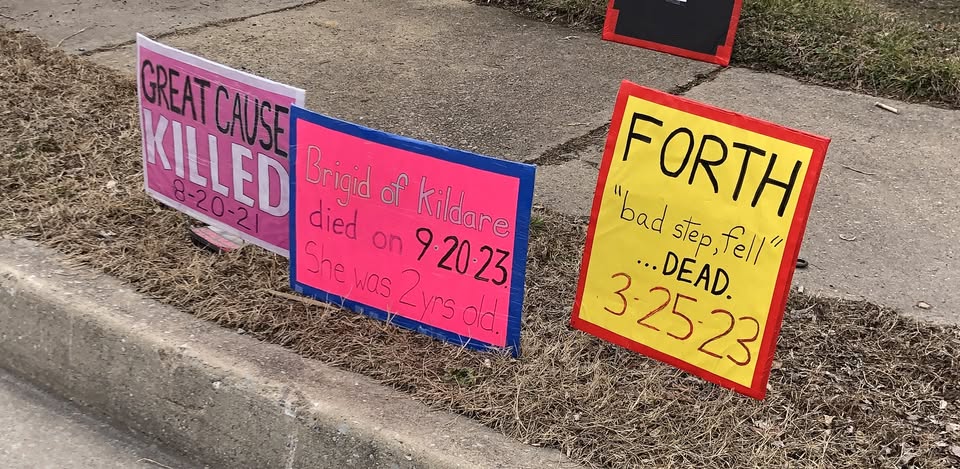 GREAT CAUSE
KILLED
8-20-21
Brigid of Kildare
died on 9.20.23.
She was 2 yrs old.
FORTH
"bad step, fell"
...DEAD.
3-25-23